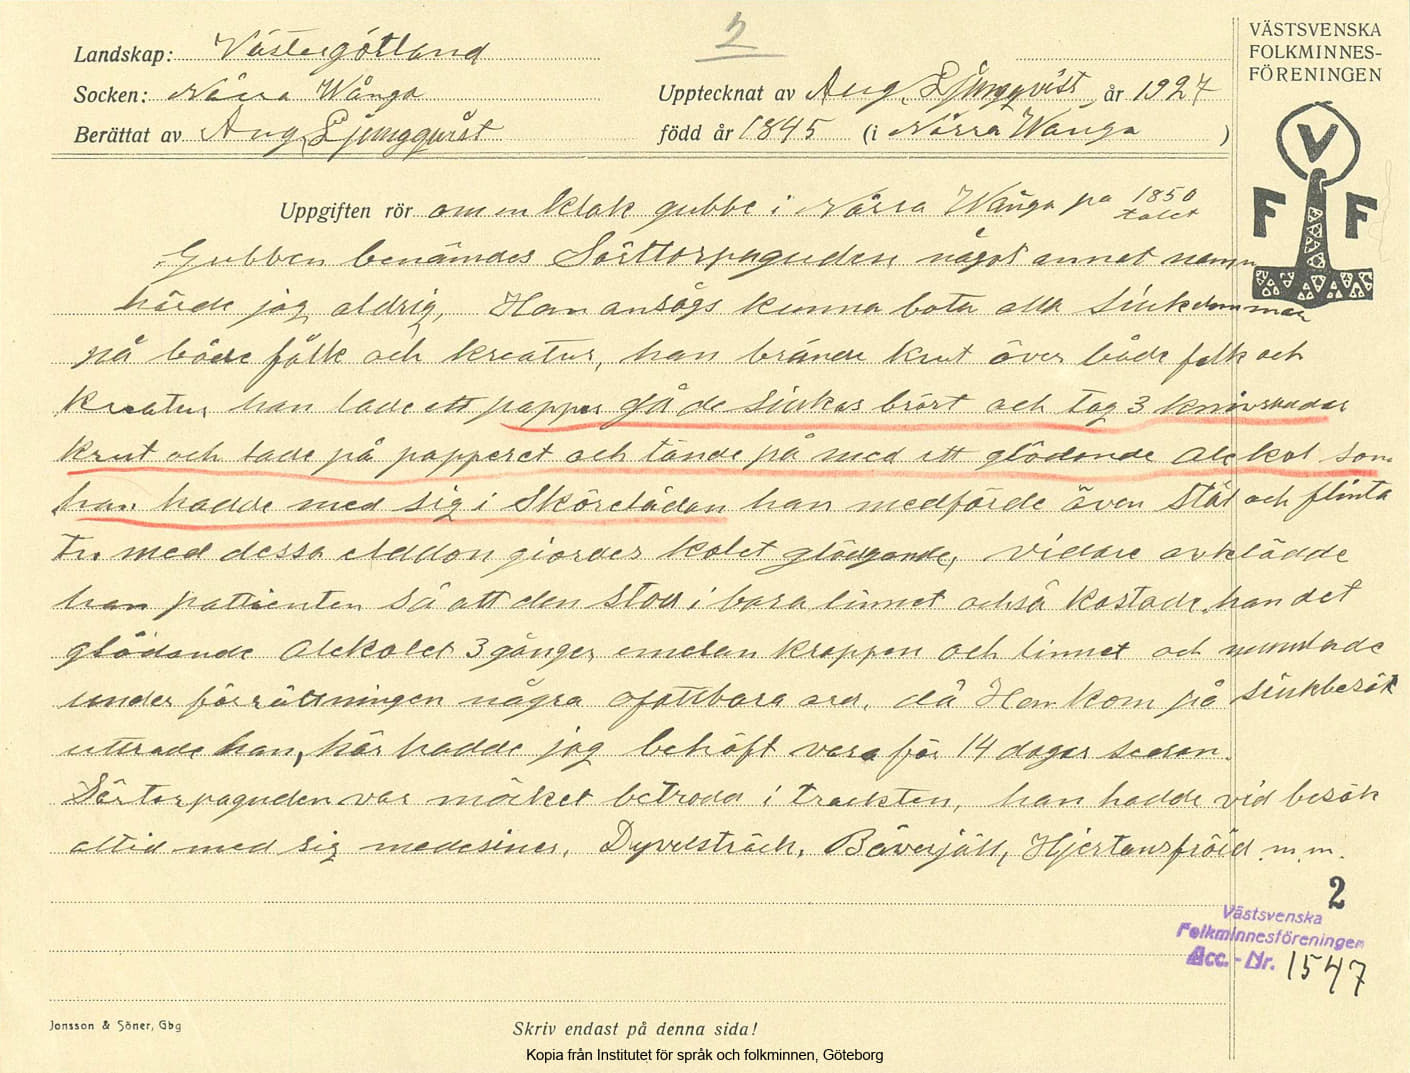 2
VÄSTSVENSKA
FOLKMINNES-
FÖRENINGEN
V
F F
Landskap: Västergötland
Socken: Norra Wånga
Upptecknat av Aug. Ljungqvist, år 1927
Berättat av Aug. Ljungqvist
född år 1845 (i Norra Wånga )
Uppgiften rör om en klok gubbe i Norra Wånga på 1850 talet
Gubben benämdes Sörttorpaguden något annet namn
hörde jog aldrig, Han ansögs kunna bota alla sinkdommar
på både fålk och kreatur, han brände krut över både folk och
kreatur han lade ett papper på de sinkas bröst och tog 3 knivsuddar
krut och lade på papperet och tände på med ett glödande alekol som
han hadde med sig i Skörelådan han medförde även stål och flinta
Tr. med dessa elddon giordes kolet glödgande, vidare avklädde
han pattienten så att den stod i bara linnet också kastade han det
glödande alekolet 3 gånger emelan kroppen och linnet och mumlade
under förrättningen några ofattbara ord, då Han kom på sinkbesök
uttrade han, här hadde jog behöft vara för 14 dagar sedan.
Sörtorpaguden var möcket betrodd i trackten, han hadde vid besök
altid med sig medesiner, Dyvelsträck, Bäverjäll, Hjertansfröid m.m.
2
Västsvenska
Folkminnesföreningen
Acc.-Nr. 1547
Jonsson & Söner, Gbg
Skriv endast på denna sida!
Kopia från Institutet för språk och folkminnen, Göteborg